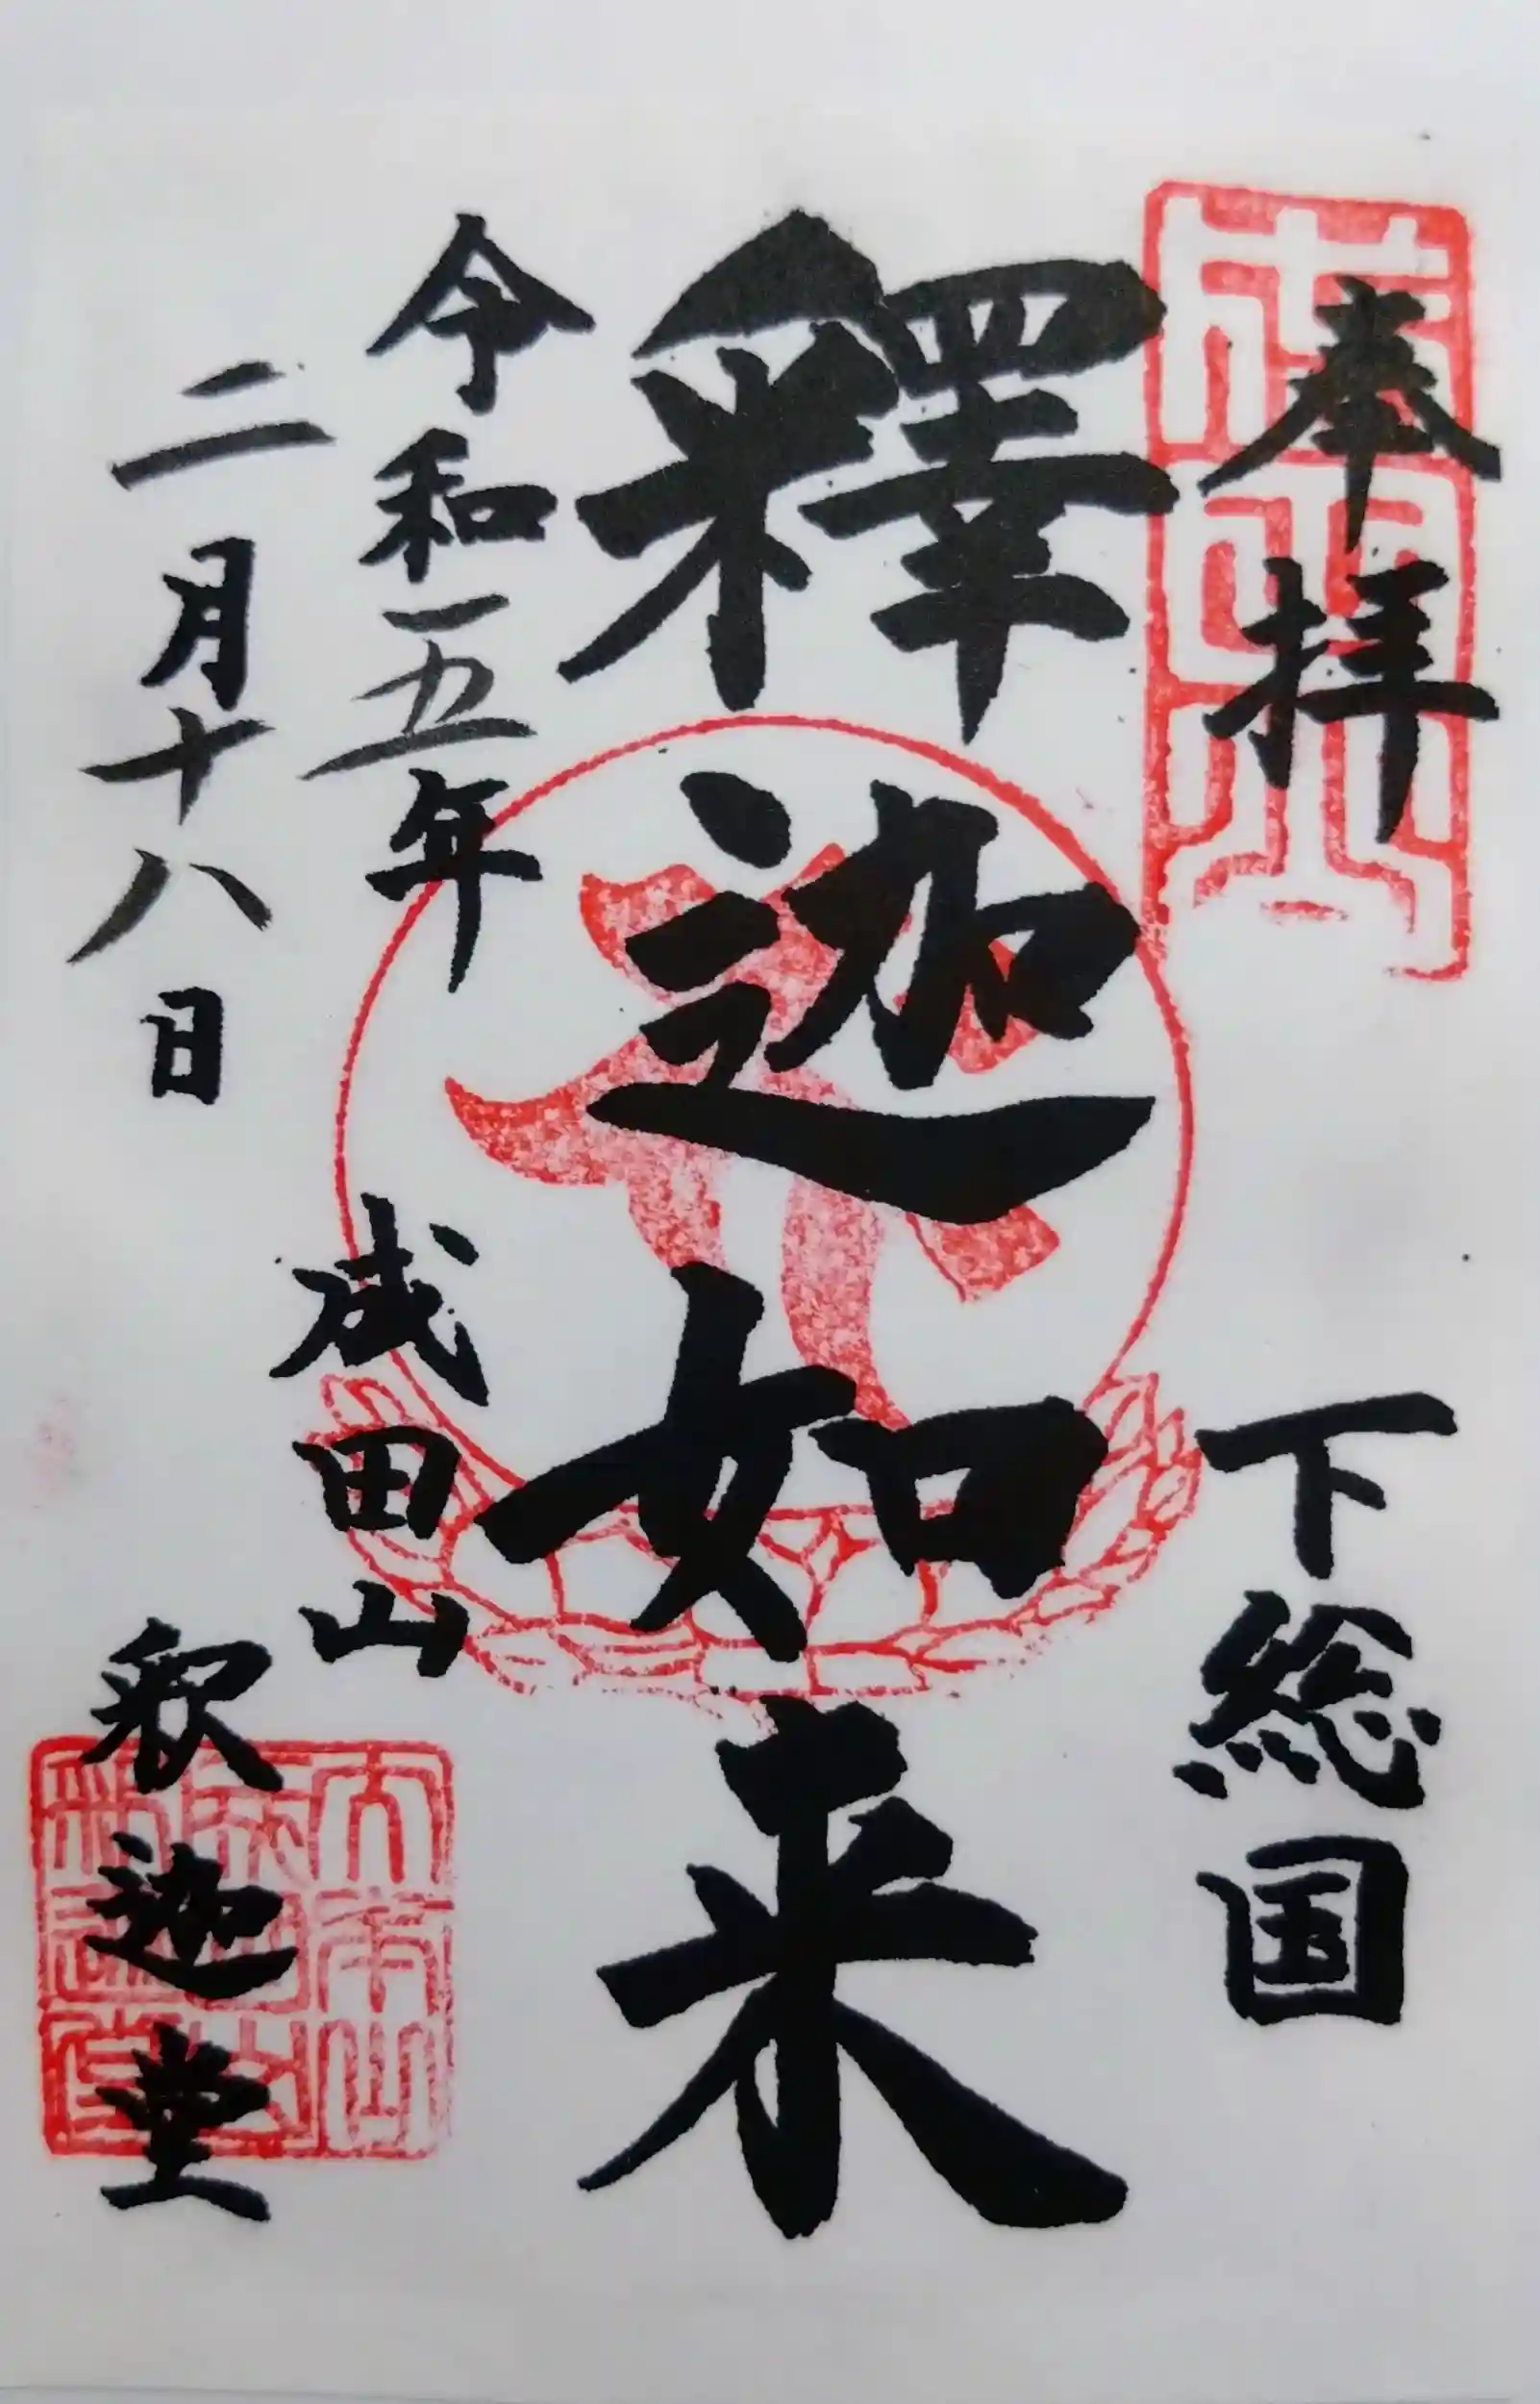 奉拝
下総国
成田山
釋迦如来
令和五年
二月十八日
成田山
釈迦堂